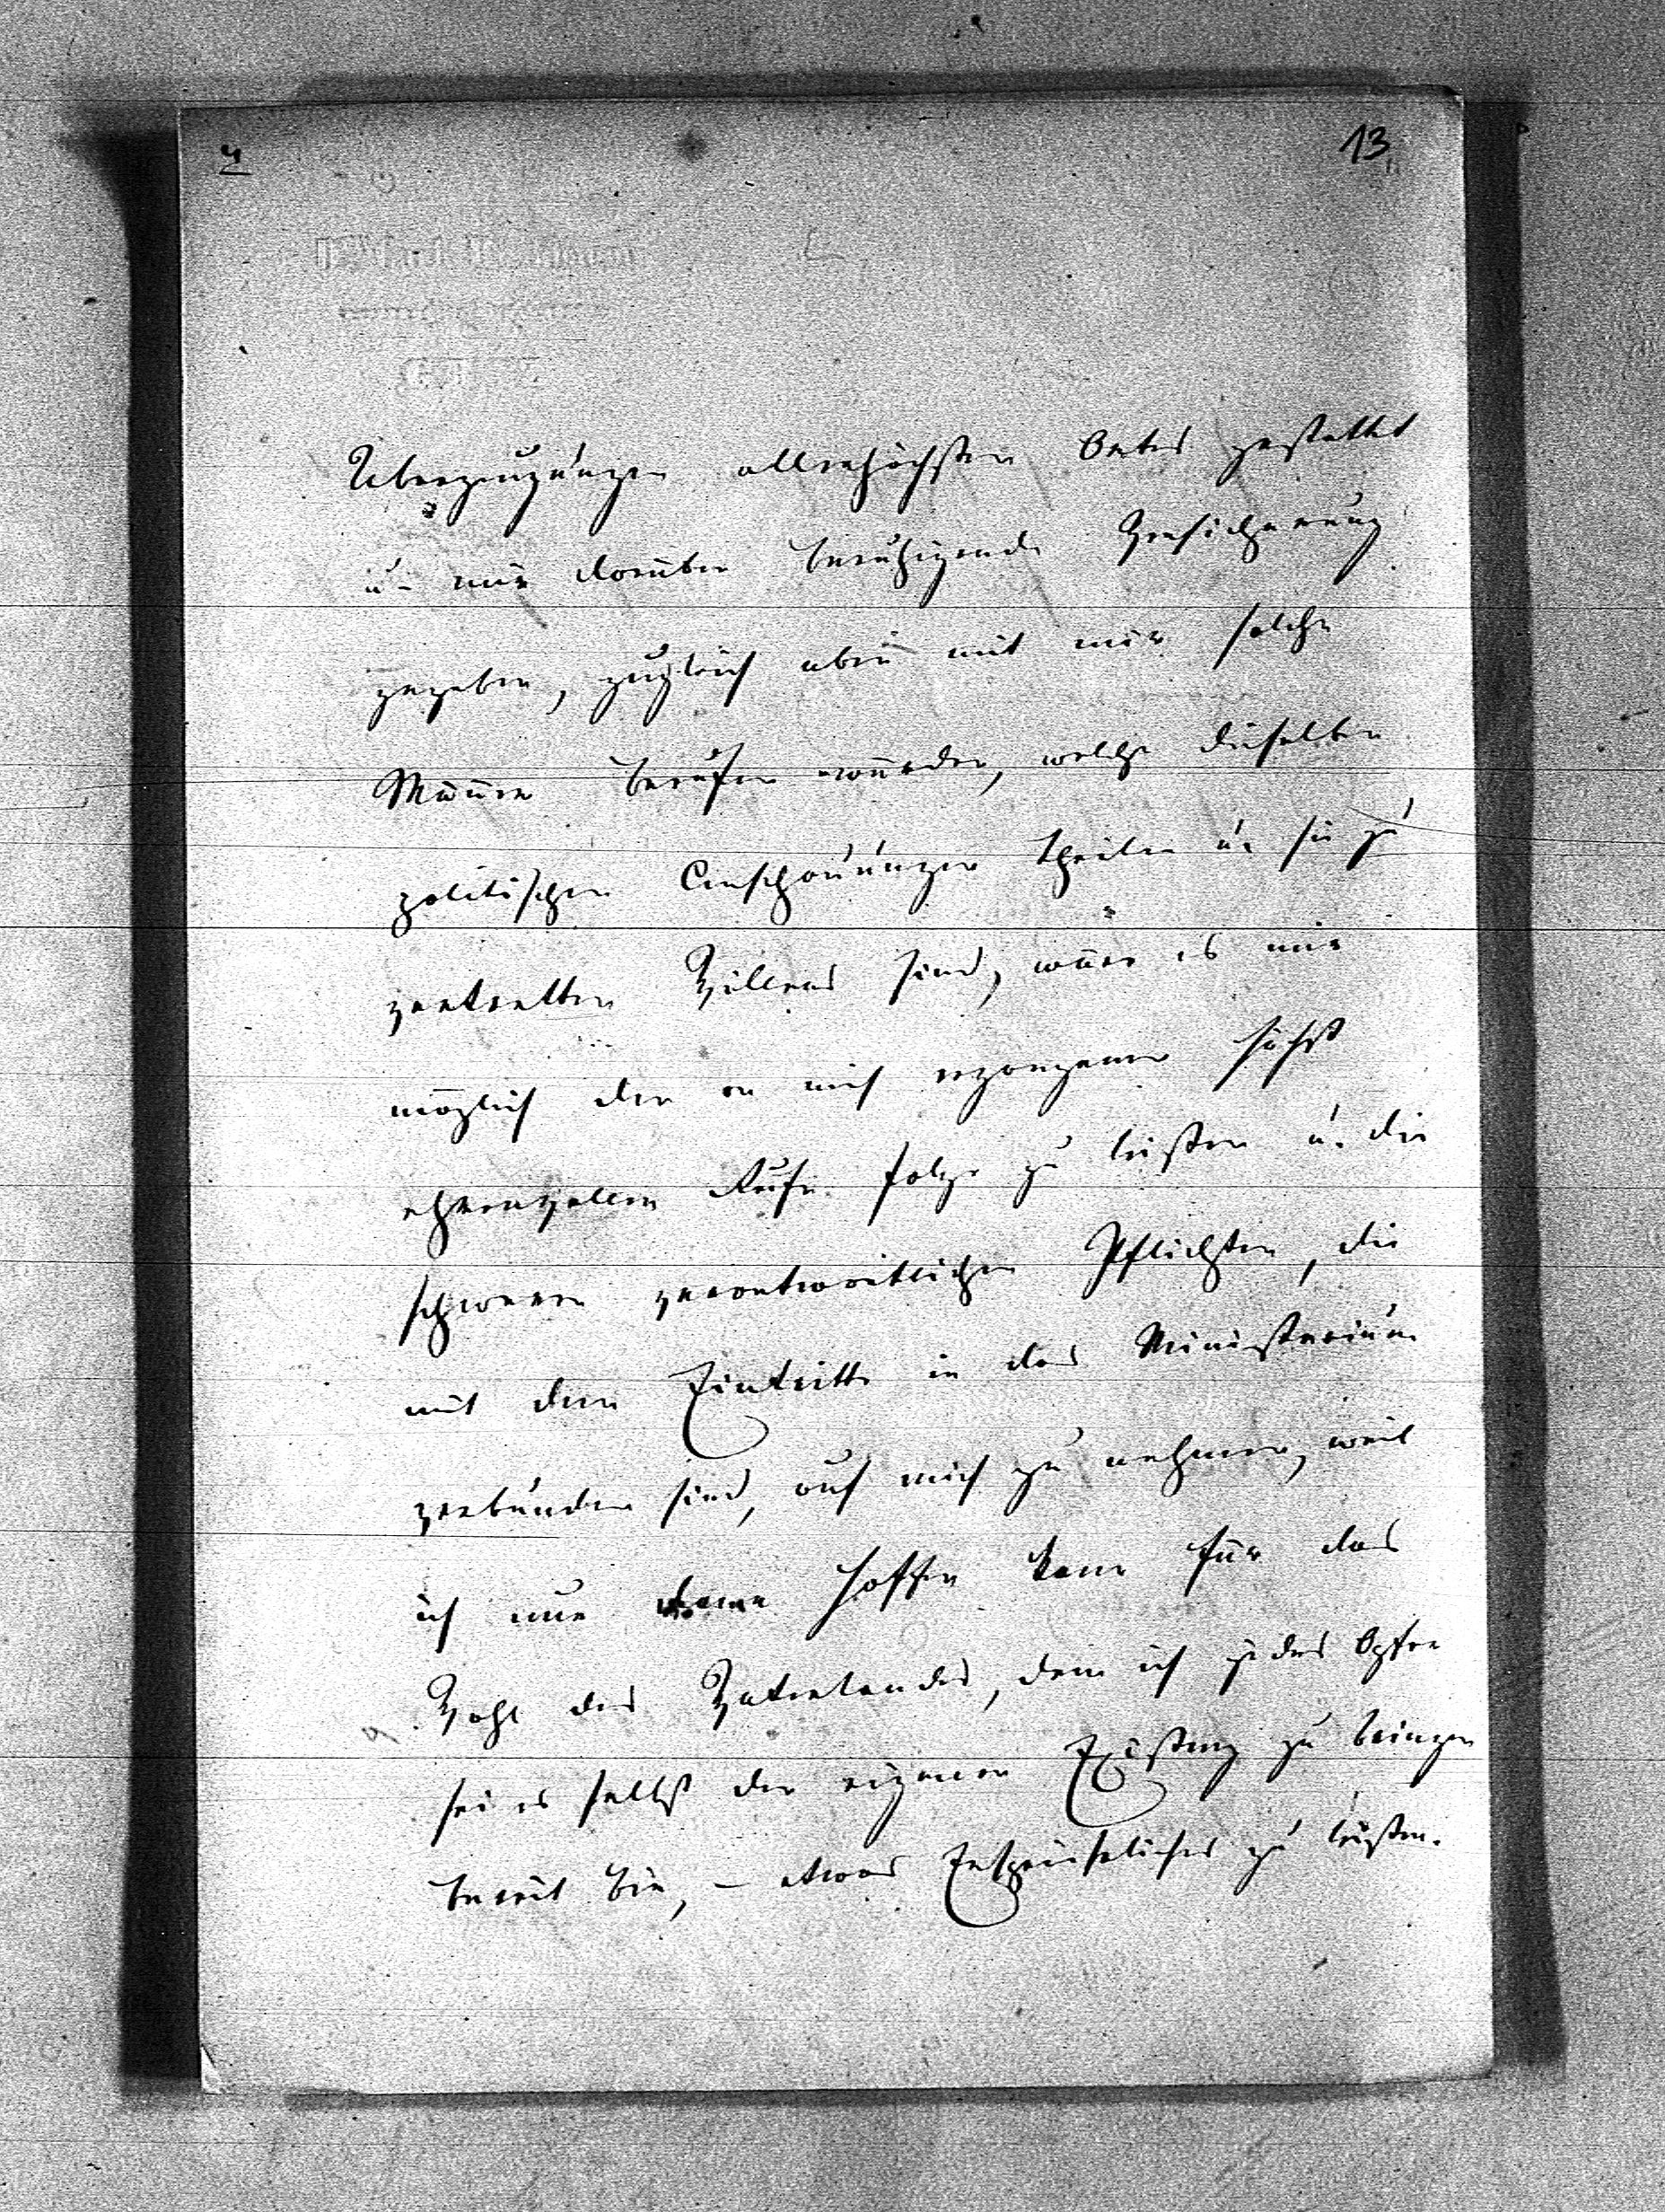 4
13
Überzeugungen allerhöchsten Ortes gestattet
u. mir darüber beruhigende Versicherung
gegeben, zugleich aber mit mir solche
Männer berufen würden, welche dieselben
politischen Anschauungen theilen u. sie zu
vertretten Willens sind, wäre es mir
möglich dem an mich ergangenen höchst
ehrenvollen Rufe folge zu leisten u. die
schweren verantwortlichen Pflichten, die
mit dem Eintritte in das Ministerium
verbunden sind, auf mich zu nehmen, weil
ich nur dann hoffen kann für das
Wohl des Vaterlandes, dem ich jedes Opfer
sei es selbst der eigenen Existenz zu bringen
bereit bin, – etwas Ersprießliches zu leisten.